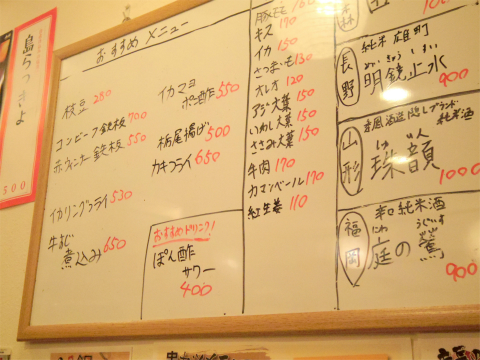 島らっきょ
500
おすすめメニュー
枝豆 280
コンビーフ鉄板 700
赤ウィンナー鉄板 550
イカリングフライ 530
牛すじ
煮込み 650
イカマヨ
ポン酢 550
栃尾揚げ 500
カキフライ 650
おすすめドリンク!
ぽん酢
サワー
400
キス 170
イカ 150
さつまいも 130
オレオ 120
アジ大葉 150
いわし大葉 150
ささみ大葉 150
牛肉 170
カマンベール 170
紅生姜 110
長野
純米 雄町
明鏡止水
900
山形
純米酒
珠韻
1000
福岡
辛口純米酒
にわ うぐいす
庭の鶯
900